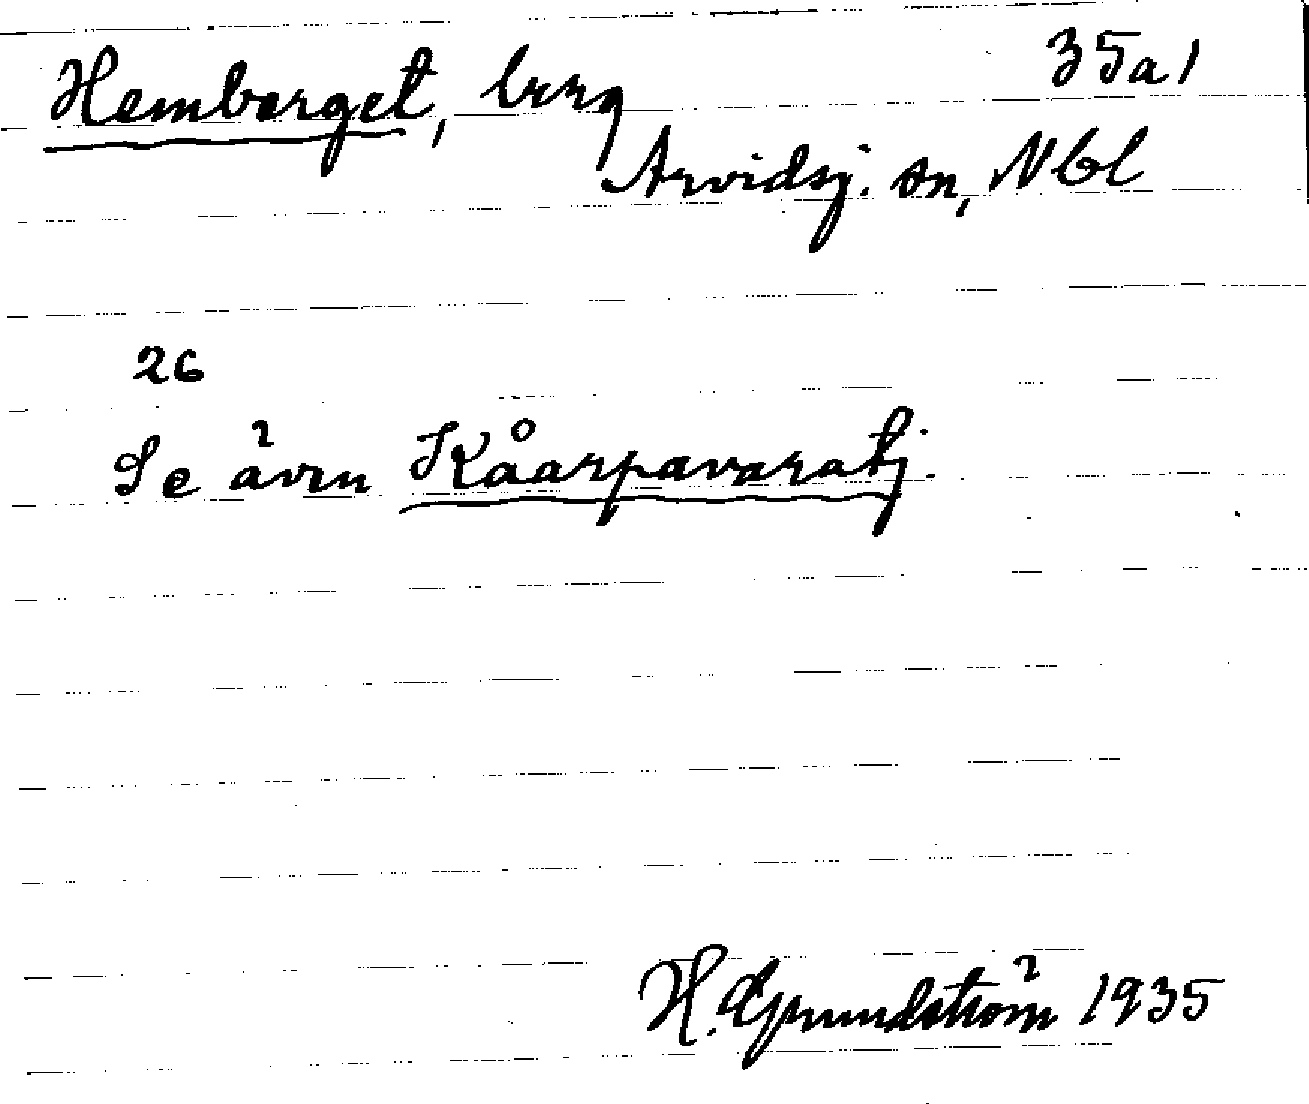 Hemberget, berg 35a1
Arvidsj. sn, Nbl
26
Se även Kåarpavaratj.
H. Grundström 1935